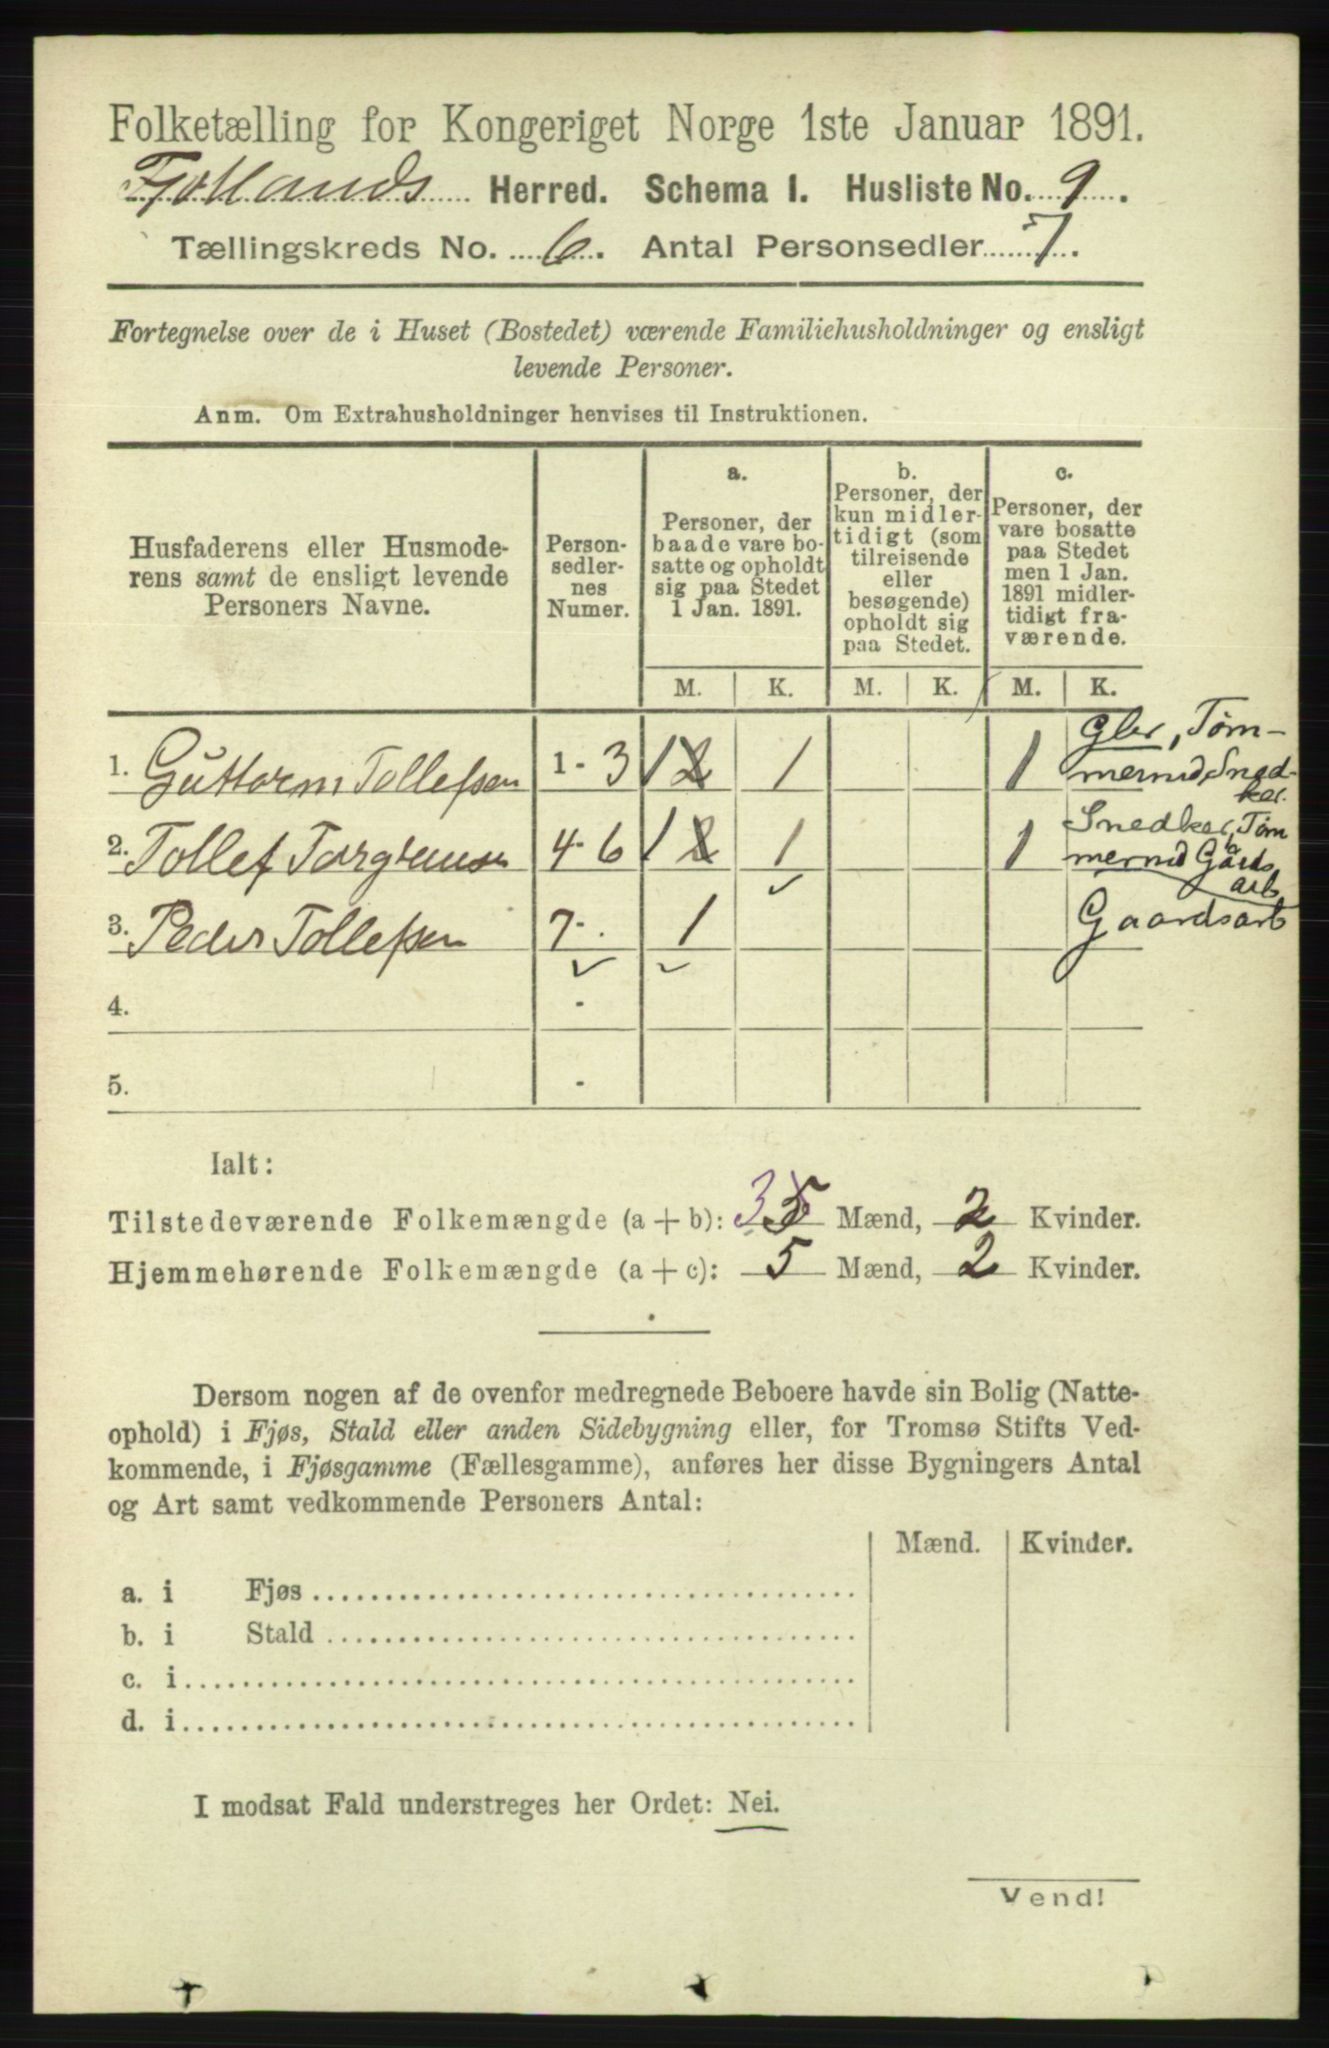 Folketælling for Kongeriget Norge 1ste Januar 1891.
Fjotlands Herred. Schema I. Husliste No. 9.
Tællingskreds No. 6. Antal Personsedler 7.
Fortegnelse over de i Huset (Bostedet) værende Familiehusholdninger og ensligt
levende Personer.
Anm. Om Extrahusholdninger henvises til Instruktionen.
Husfaderens eller Husmode-
rens samt de ensligt levende
Personers Navne.
Person-
sedler-
nes
Numer.
a.
Personer, der
baade vare bo-
satte og opholdt
sig paa Stedet
1 Jan. 1891.
b.
Personer, der
kun midler-
tidigt (som
tilreisende
eller
besøgende)
opholdt sig
paa Stedet.
c.
Personer, der
vare bosatte
paa Stedet
men 1 Jan.
1891 midler-
tidigt fra-
værende.
M. K. M. K. M. K.
1. Guttorm Tollefsen 1-3 1 2 1 1 Gbr, Tøm-
mermd, Sned-
ker.
2. Tollef Torgrimsen 4-6 1 2 1 1 Snedker, Tøm
mermd Gaards
arb
3. Peder Tollefsen 7- 1 Gaardsarb
4. -
5. -
Ialt:
Tilstedeværende Folkemængde (a + b): 3 5 Mænd, 2 Kvinder.
Hjemmehørende Folkemængde (a + c): 5 Mænd, 2 Kvinder.
Dersom nogen af de ovenfor medregnede Beboere havde sin Bolig (Natte-
ophold) i Fjøs, Stald eller anden Sidebygning eller, for Tromsø Stifts Ved-
kommende, i Fjøsgamme (Fællesgamme), anføres her disse Bygningers Antal
og Art samt vedkommende Personers Antal:
Mænd. Kvinder.
a. i Fjøs
b. i Stald
c. i
d. i
I modsat Fald understreges her Ordet: Nei.
Vend!